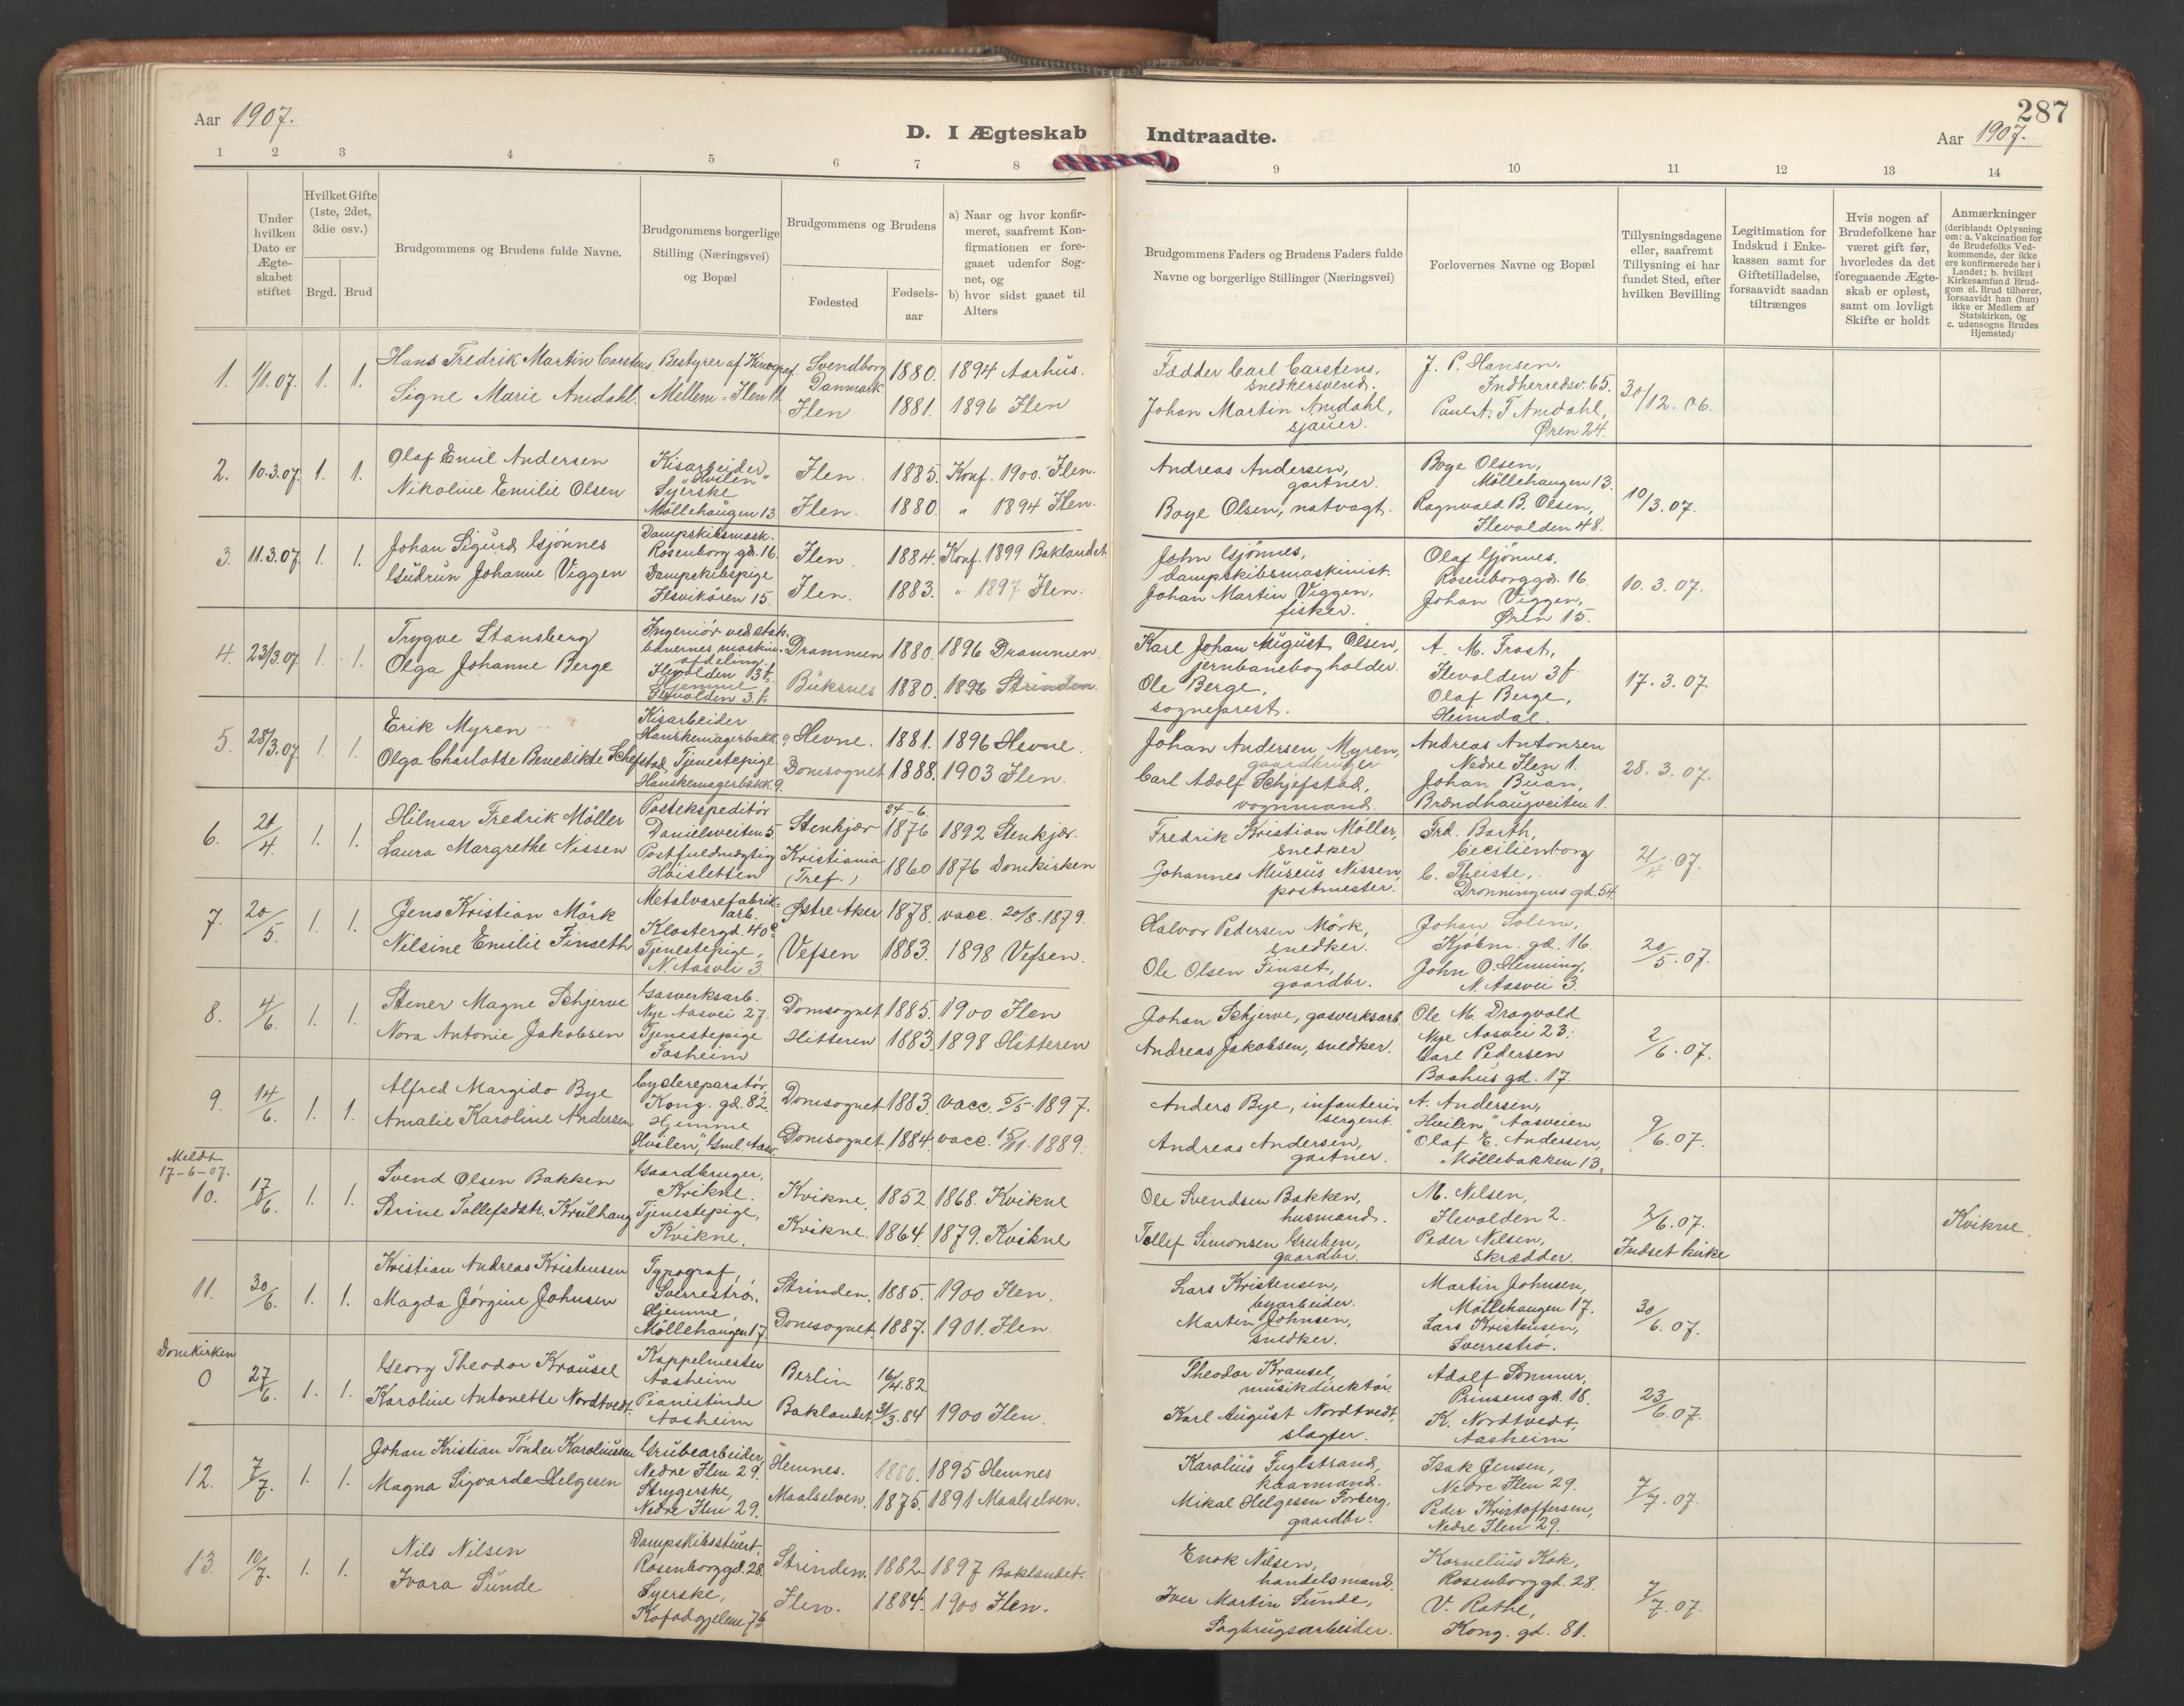 Aar 1907.
D. I Ægteskab Indtraadte.
287
Aar 1907.
1 2 3 4 5 6 7 8 9 10 11 12 13 14
Under hvilken Dato er Ægteskabet stiftet
Hvilket Gifte (1ste, 2det, 3die osv.)
Brgd. Brud
Brudgommens og Brudens fulde Navne.
Brudgommens borgerlige Stilling (Næringsvei) og Bopæl
Brudgommens og Brudens
Fødested
Fødselsaar
a) Naar og hvor konfirmeret, saafremt Konfirmationen er foregaaet udenfor Sognet, og
b) hvor sidst gaaet til Alters
Brudgommens Faders og Brudens Faders fulde Navne og borgerlige Stillinger (Næringsvei)
Forlovernes Navne og Bopæl
Tillysningsdagene eller, saafremt Tillysning ei har fundet Sted, efter hvilken Bevilling
Legitimation for Indskud i Enkekassen samt for Giftetilladelse, forsaavidt saadan tiltrænges
Hvis nogen af Brudefolkene har været gift før, hvorledes da det foregaaende Ægteskab er opløst, samt om lovligt Skifte er holdt
Anmærkninger (deriblandt Oplysning om: a. Vakcination for de Brudefolks Vedkommende, der ikke ere konfirmerede her i Landet; b. hvilket Kirkesamfund Brudgom el. Brud tilhører, forsaavidt han (hun) ikke er Medlem af Statskirken, og c. udensogns Brudes Hjemsted)
1. 1/1.07. 1. 1.
Hans Fredrik Martin Carstens. Bestyrer af Kinograf. Svendborg Danmark. 1880. 1894 Aarhus.
Signe Marie Amdahl. Mellem-Ilen 11. Ilen 1881. 1896 Ilen
Fædder Carl Carstens, snedkersvend.
Johan Martin Amdahl, sjauer.
J. P. Hansen, Indherredsv. 65.
Paul A. T. Amdahl, Øren 24.
30/12.06.
2. 10.3.07. 1. 1.
Olaf Emil Andersen Kisarbeider, "Hvilen" Ilen. 1885. Konf. 1900. Ilen.
Nikoline Emilie Olsen Syerske Möllehaugen 13 Ilen. 1880. " 1894 Ilen.
Andreas Andersen, gartner.
Boye Olsen, natvagt.
Boye Olsen, Möllehaugen 13.
Ragnvald B. Olsen, Ilevolden 48.
10/3.07.
3. 11.3.07. 1. 1.
Johan Sigurd Gjønnes Dampskibsmask. Rosenborg gd. 16. Ilen. 1884. Konf. 1899 Baklandet.
Gudrun Johanne Viggen Dampskibspige Ilsvikøren 15. Ilen. 1883. " 1897 Ilen.
John Gjønnes, dampskibsmaskinist.
Johan Martin Viggen, fisker.
Olaf Gjønnes, Rosenborggd. 16
Johan Viggen, Øren 15.
10.3.07.
4. 23/3.07 1. 1.
Trygve Stansberg Ingeniør ved statsbanernes maskinafdeling. Ilevolden 3f. Drammen 1880. 1896 Drammen.
Olga Johanne Berge Hjemme Ilevolden 3.f. Buksnes 1880. 1896 Strinden.
Karl Johan August Olsen, jernbanebogholder.
Ole Berge, sogneprest.
A. M. Frost, Ilevolden 3f.
Olaf Berge, Heimdal.
17.3.07.
5. 28/3.07 1. 1.
Erik Myren Kisarbeider Hanskemagerbakk. 9 Hevne. 1881. 1896 Hevne.
Olga Charlotte Benedikte Schefstad Tjenestepige Hanskemagerbakk. 9. Domsognet 1888. 1903 Ilen.
Johan Andersen Myren, gaardbruger
Carl Adolf Schjefstad, vognmand.
Andreas Antonsen Nedre Ilen 1.
Johan Buan, Brændhaugveiten 1.
28.3.07.
6. 21/4. 1. 1.
Hilmar Fredrik Möller Postekspeditør Danielsveiten 5 Stenkjær 24-6. 1876 1892 Stenkjær.
Laura Margrethe Nissen Postfuldmægtig Høisletten Kristiania (Tref.) 1860 1876 Domkirken
Fredrik Kristian Möller, snedker
Johannes Museus Nissen, postmester.
Frd. Barth, Cecilienborg
C. Theiste, Dronningens gd. 54.
21/4.07.
7. 20/5. 1. 1.
Jens Kristian Mörk Metalvarefabrik-arb. Klostergd. 40c Østre Aker 1878. vacc. 20/8.1879.
Nilsine Emilie Finseth Tjenestepige, N. Aasvei 3 Vefsen 1883. 1898 Vefsen.
Halvor Pedersen Mörk, snedker.
Ole Olsen Finset, gaardbr.
Johan Solem, Kjøbm. gd. 16.
John O. Henning, N. Aasvei 3.
20/5.07.
8. 4/6. 1. 1.
Stener Magne Schjerve Gasverksarb. Nye Aasvei 27. Domsognet 1885. 1900 Ilen
Nora Antonie Jakobsen Tjenestepige Aasheim Hitteren 1883. 1898 Hitteren
Johan Schjerve, gasverksarb.
Andreas Jakobsen, snedker.
Ole M. Dragvold Nye Aasvei 23.
Carl Pedersen Baahus gd. 17.
2/6.07.
9. 14/6. 1. 1.
Alfred Margido Bye Cyclereparatør, Kong. gd. 82. Domsognet 1883. vacc. 5/5.1897.
Amalie Karoline Andersen Hjemme "Hvilen", Gml. Aasv. Domsognet. 1884. vacc. 15/11.1889.
Anders Bye, infanteri-sergent.
Andreas Andersen, gartner.
A. Andersen, "Hvilen" Aasveien
Olaf E. Andersen, Möllebakken 13.
9/6.07.
Meldt 17-6-07.
10. 17/6. 1. 1.
Svend Olsen Bakken Gaardbruger, Kvikne. Kvikne. 1852. 1868. Kvikne
Strine Tollefsdtr. Krulhaug Tjenestepige, Kvikne. Kvikne. 1864. 1879. Kvikne
Ole Svendsen Bakken, husmand.
Tollef Simonsen Gruben, gaardbr.
M. Nilsen, Ilevolden 2.
Peder Nilsen, skrædder.
2/6.07. Indset kirke
Kvikne.
11. 30/6. 1. 1.
Kristian Andreas Kristensen Typograf, Sverrestrø. Strinden. 1885. 1900 Ilen.
Magda Jørgine Johnsen Hjemme, Möllehaugen 17. Domsognet. 1887. 1901. Ilen.
Lars Kristensen, byarbeider.
Martin Johnsen, snedker.
Martin Johnsen, Möllehaugen 17.
Lars Kristensen, Sverrestrø.
30/6.07.
Domkirken
0 27/6. 1. 1.
Georg Theodor Krausel Kappelmester Aasheim Berlin 16/4.82
Karoline Antonette Nordtvedt. Pianistinde Aasheim Baklandet 31/3.84 1900 Ilen.
Theodor Krausel, musikdirektør.
Karl August Nordtvedt, slagter.
Adolf Sommer, Prinsensgd. 18.
K. Nordtvedt, Aasheim
23/6.07.
12. 7/7. 1. 1.
Johan Kristian Tønder Karoliussen Grubearbeider, Nedre Ilen 29. Hemnes. 1880. 1895 Hemnes
Magna Sigvarda Helgesen Strygerske, Nedre Ilen 29. Maalselven. 1875. 1891 Maalselven.
Karolius Fuglstrand, kaarmand.
Mikal Helgesen Forberg, gaardbr.
Isak Jensen, Nedre Ilen 29.
Peder Kristoffersen, Nedre Ilen 29.
7/7.07.
13. 10/7. 1. 1.
Nils Nilsen Dampskibsstuert, Rosenborggd. 28. Strinden. 1882. 1897 Baklandet.
Ivara Sunde Syerske, Kofodgjelene 7b Ilen. 1884. 1900 Ilen.
Enok Nilsen, handelsmand.
Iver Martin Sunde, Sagbrugsarbeider.
Kornelius Kok, Rosenborggd. 28.
V. Rathe, Kong. gd. 81.
7/7.07.